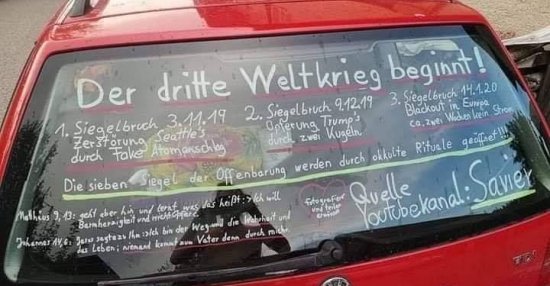 Der dritte Weltkrieg beginnt!
1. Siegelbruch 3.11.19
Zerstörung Seattle's
durch Fake Atomanschlag
2. Siegelbruch 9.12.19
Opferung Trump's
durch zwei Kugeln
3. Siegelbruch 14.1.20
Blackout in Europa
ca. zwei Wochen kein Strom
Die sieben Siegel der Offenbarung werden durch okkulte Rituale geöffnet!!!
Matthäus 9,13: geht aber hin und lernt was das heißt: Ich will
Barmherzigkeit und nicht Opfer
Johannes 14,6: Jesus sagte zu ihm: Ich bin der Weg und die Wahrheit und
das Leben; niemand kommt zum Vater denn durch mich.
Fotografieren
und teilen
erwünscht
Quelle
Youtubekanal: Savier
TDI